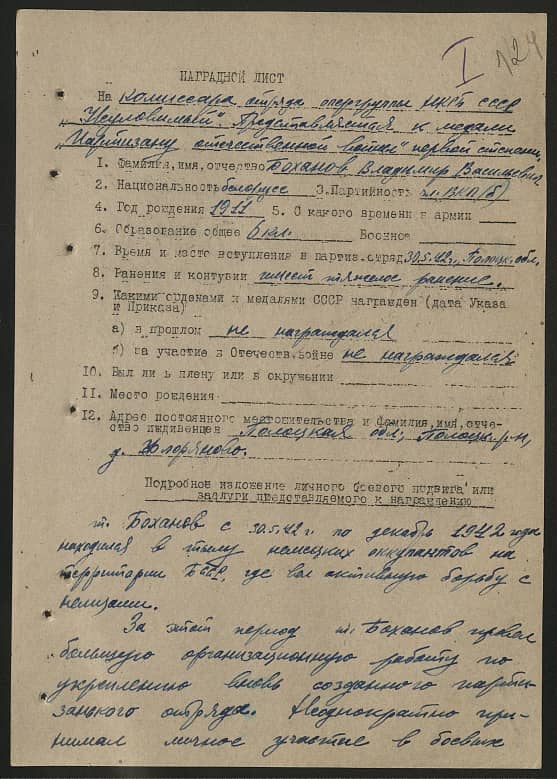 I
124
НАГРАДНОЙ ЛИСТ
На Комиссара отряда опергруппы НКГБ СССР
„Неуловимый" Представляется к медали
„Партизану отечественной войны" первой степени.
1. Фамилия,имя,отчество Боханов Владимир Васильевич
2. Национальность белорусс 3.Партийность чл. ВКП(б)
4. Год рождения 1911 5. С какого времени в армии
6. Образование общее 6 кл. Военное
7. Время и место вступления в партиз.отряд 30.5.42г., Полоцк. обл.
8. Ранения и контузии имеет тяжелое ранение.
9. Какими орденами и медалями СССР награжден (дата Указа
и Приказа)
а) в прошлом не награждался
б) за участие в Отечеств.войне не награждался
10. Был ли в плену или в окружении
11. Место рождения
12. Адрес постоянного местожительства и фамилия,имя,отче-
ство иждивенцев Полоцкая обл., Полоцк. р-н,
д.
Подробное изложение личного боевого подвига или
заслуги представляемого к награждению
т. Боханов с 30.5.42 г. по декабрь 1942 года
находился в тылу немецких оккупантов на
территории БССР, где вел активную борьбу с
немцами.
За этот период т. Боханов провел
большую организационную работу по
укреплению вновь созданного парти-
занского отряда. Неоднократно при-
нимал личное участие в боевых